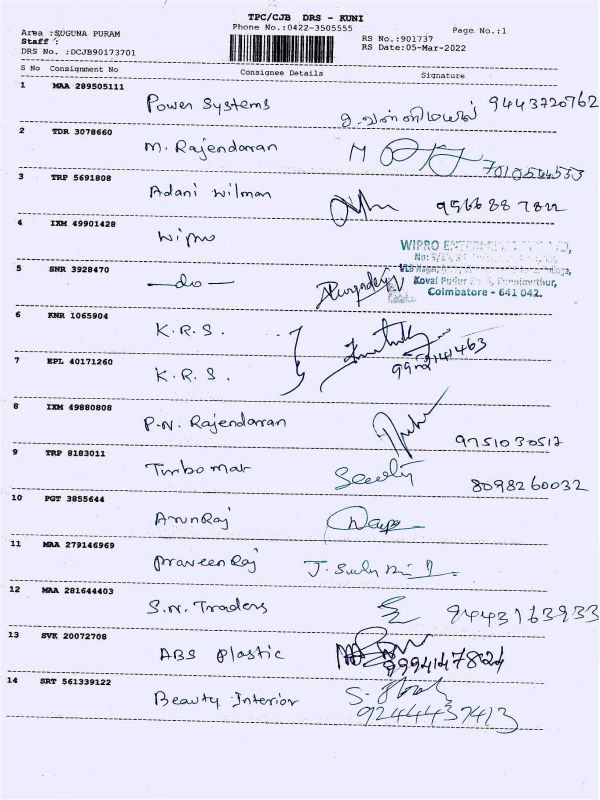 TPC/CJB DRS - KUNI
Phone No.:0422-3505555
Page No.:1
Area :SUGUNA PURAM
Staff :
DRS No. :DCJB90173701
RS No.:901737
RS Date:05-Mar-2022
S No Consignment No Consignee Details Signature
1 MAA 289505111 Power Systems 9443720762
2 TDR 3078660 M. Rajendaran
3 TRP 5691808 Adani Wilman 9566887822
4 IXM 49901428 Wipro
WIPRO
Kovai Pudur
Coimbatore - 641 042.
5 SNR 3928470 —do—
6 KNR 1065904 K.R.S.
7 EPL 40171260 K.R.S. 9952141463
8 IXM 49880808 P.N. Rajendaran 9751030512
9 TRP 8183011 Turbomat 8098260032
10 PGT 3855644 ArunRaj
11 MAA 279146969 PraveenRaj
12 MAA 281644403 S.N. Traders 9443163933
13 SVK 20072708 ABS Plastic
14 SRT 561339122 Beauty Interior